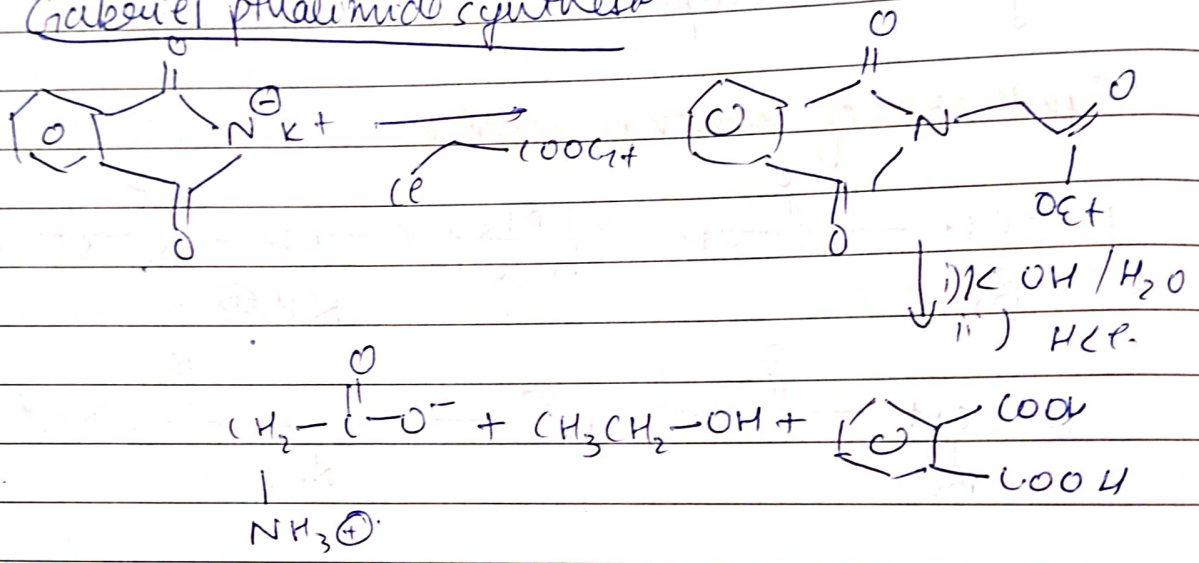 Gabriel phthalimide synthesis
O O
O
N⊖ K+ N
Cl COOEt
O O OEt
i) K OH / H2O
ii) HCl.
O
CH2-C-O- + CH3CH2-OH + COOH
COOH
NH3⊕